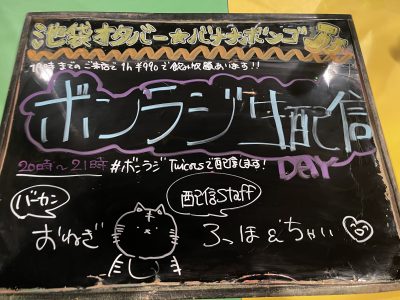 池袋オタバー☆バナナボンゴ
19時までのご来店で1h¥990で飲み放題あります!!
ボンラジ生配信
DAY
20時〜21時 #ボンラジ Twicasで配信します!
バーカン
配信Staff
おねぎ
ろ、ほ&ぴちゃい